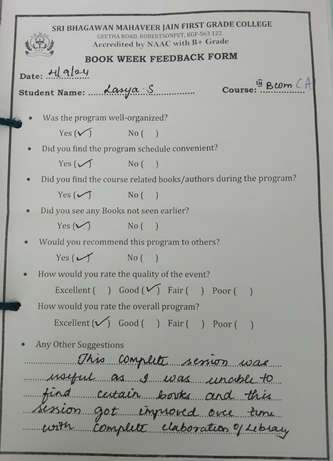 SRI BHAGAWAN MAHAVEER JAIN FIRST GRADE COLLEGE
GEETHA ROAD, ROBERTSONPET, KGF-563 122.
Accredited by NAAC with B+ Grade
BOOK WEEK FEEDBACK FORM
Date: 4/9/24
Student Name: Lasya.S Course: Bcom (A
• Was the program well-organized?
Yes (✓) No ( )
• Did you find the program schedule convenient?
Yes (✓) No ( )
• Did you find the course related books/authors during the program?
Yes (✓) No ( )
• Did you see any Books not seen earlier?
Yes (✓) No ( )
• Would you recommend this program to others?
Yes (✓) No ( )
• How would you rate the quality of the event?
Excellent ( ) Good (✓) Fair ( ) Poor ( )
How would you rate the overall program?
Excellent (✓) Good ( ) Fair ( ) Poor ( )
• Any Other Suggestions
This complete session was
useful as I was unable to
find certain books and this
session got improved over time
with complete elaboration of Library